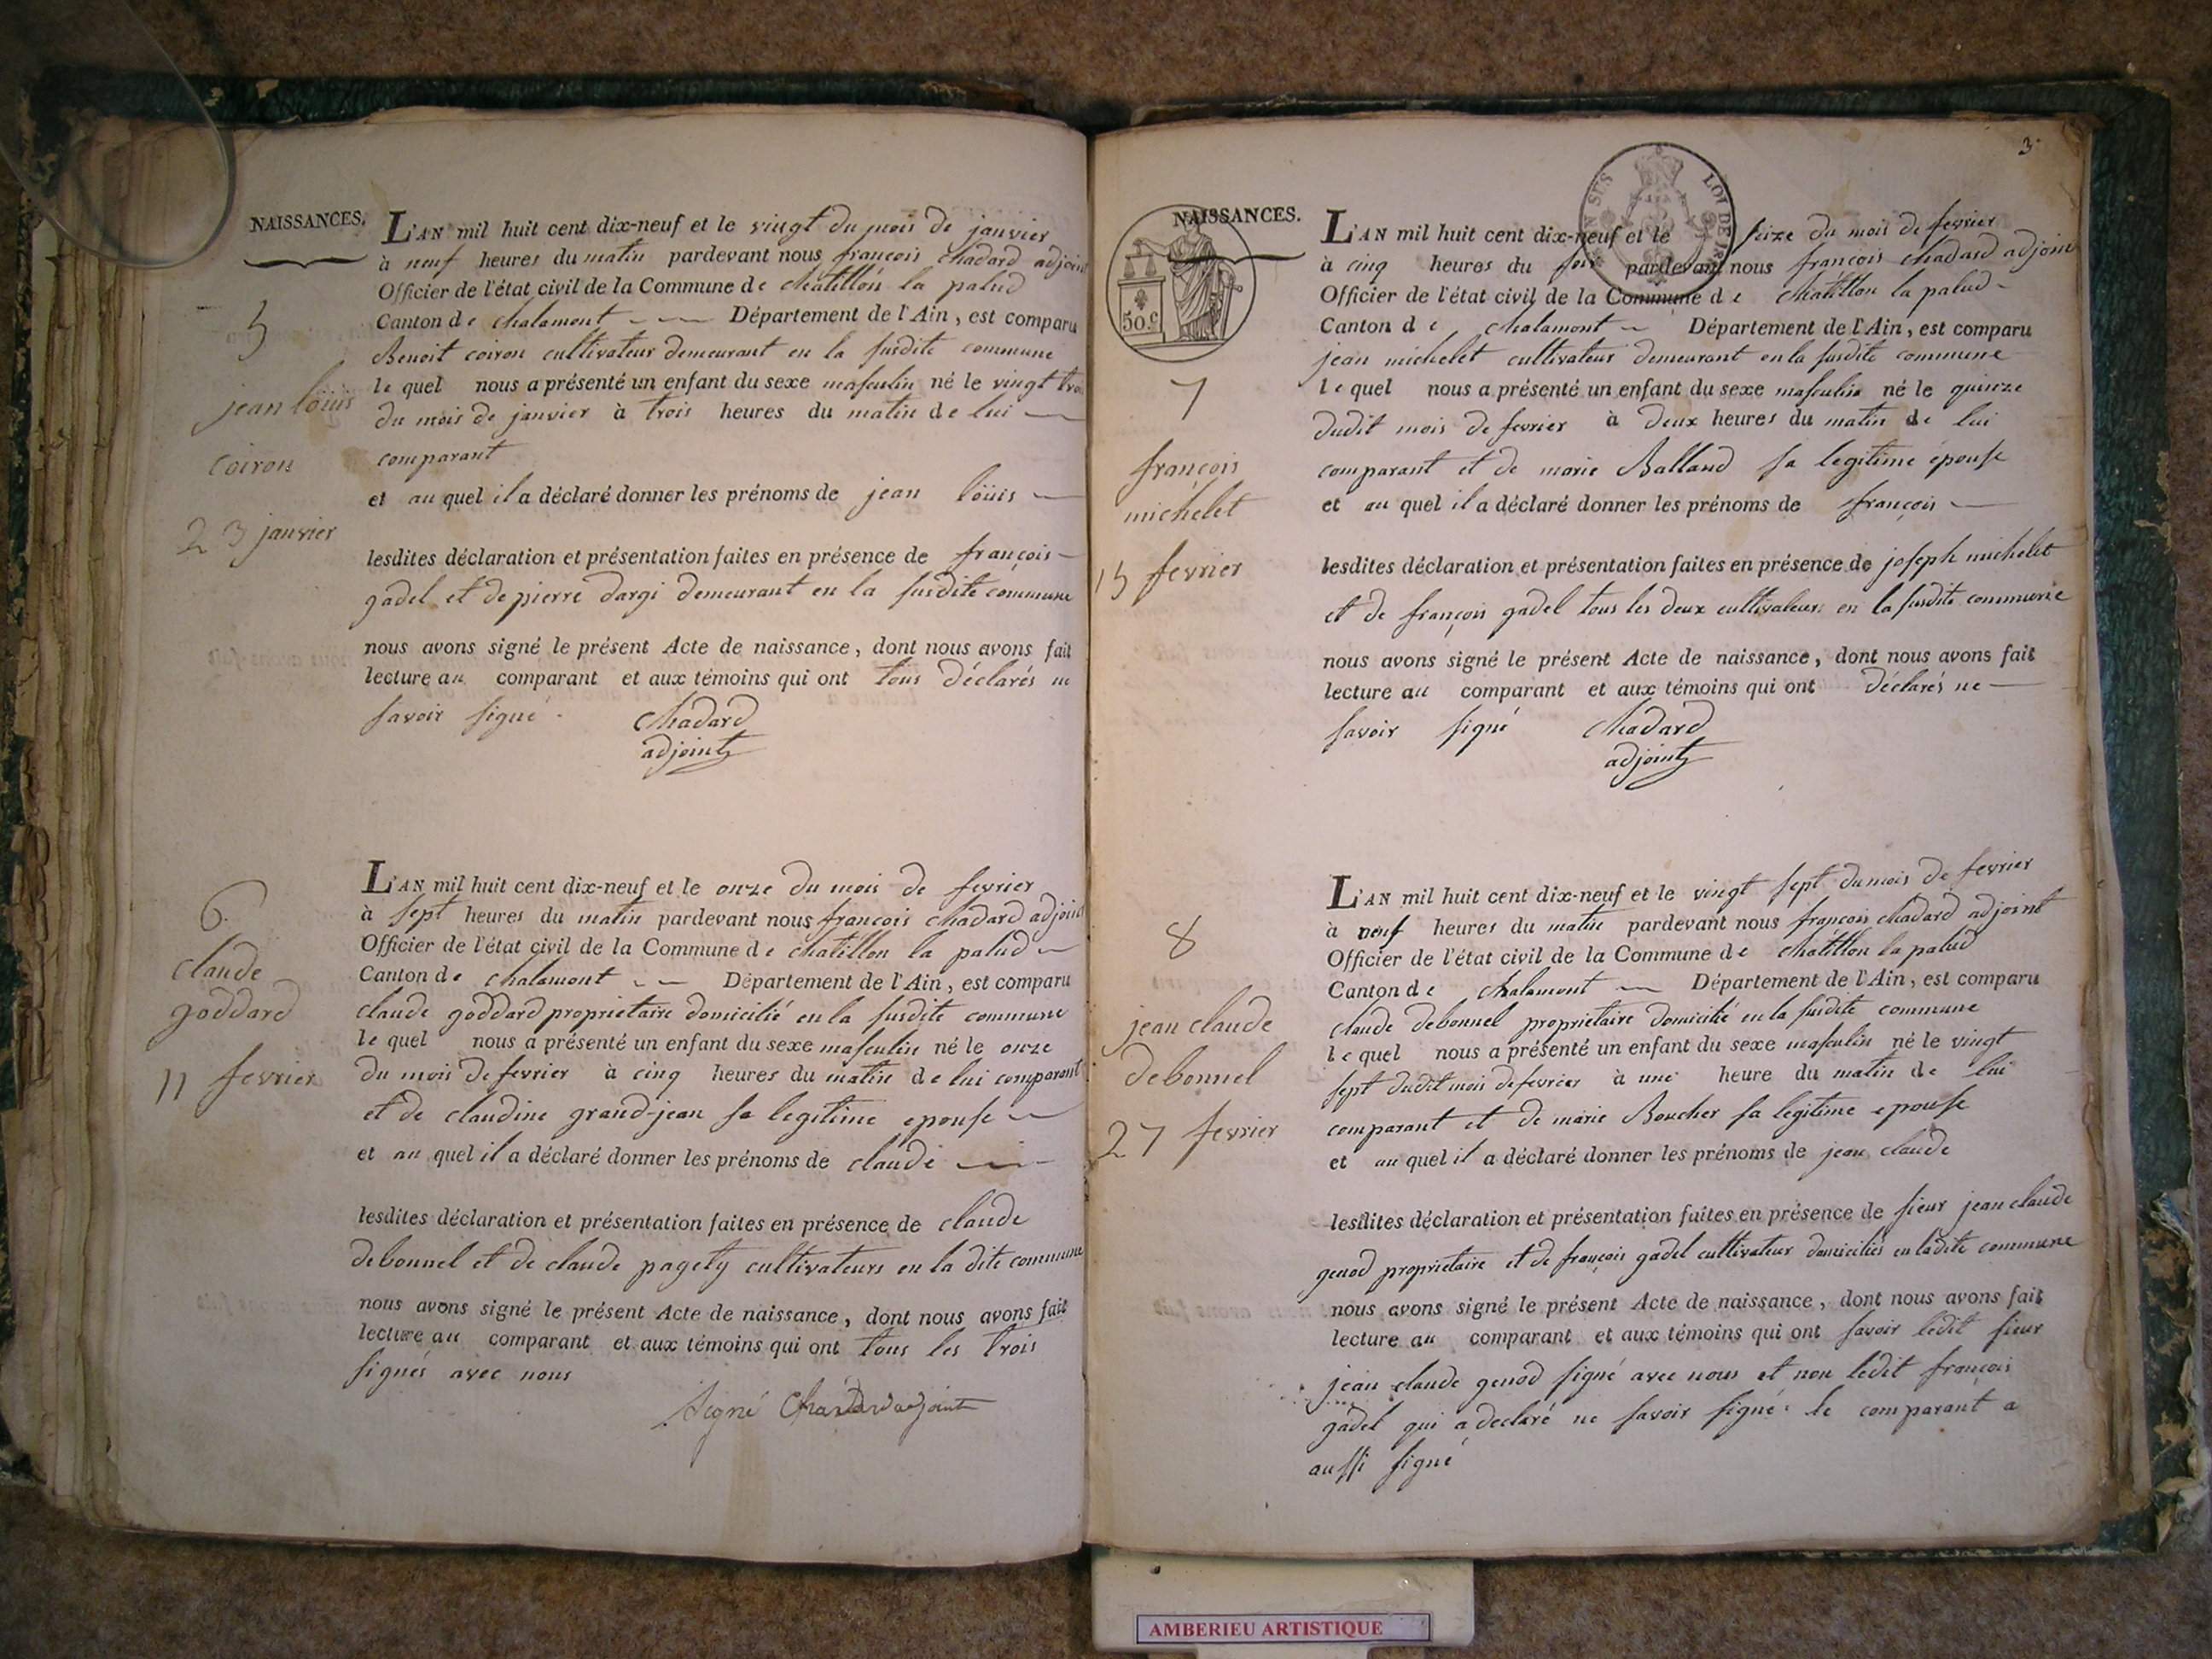 NAISSANCES.
5
jean löuis
coiron
23 janvier
L'AN mil huit cent dix-neuf et le vingt du mois de janvier
à neuf heures du matin pardevant nous françois chadard adjoint
Officier de l'état civil de la Commune de chatillon la palud
Canton de chalamont Département de l'Ain, est comparu
Benoit coiron cultivateur demeurant en la susdite commune
le quel nous a présenté un enfant du sexe masculin né le vingt
du mois de janvier à trois heures du matin de lui
comparant
et au quel il a déclaré donner les prénoms de jean löuis
lesdites déclaration et présentation faites en présence de françois
gadel et de pierre dargi demeurant en la susdite commune
nous avons signé le présent Acte de naissance, dont nous avons fait
lecture au comparant et aux témoins qui ont tous déclarés ne
savoir signé.
chadard
adjoint
6.
claude
goddard
11 fevrier
L'AN mil huit cent dix-neuf et le onze du mois de fevrier
à sept heures du matin pardevant nous françois chadard adjoint
Officier de l'état civil de la Commune de chatillon la palud
Canton de chalamont Département de l'Ain, est comparu
claude goddard proprietaire domicilié en la susdite commune
le quel nous a présenté un enfant du sexe masculin né le onze
du mois de fevrier à cinq heures du matin de lui comparant
et de claudine grand-jean sa legitime epouse
et au quel il a déclaré donner les prénoms de claude
lesdites déclaration et présentation faites en présence de claude
debonnel et de claude pagety cultivateurs en la dite commune
nous avons signé le présent Acte de naissance, dont nous avons fait
lecture au comparant et aux témoins qui ont tous les trois
signés avec nous
Signé Chadard adjoint
3
NAISSANCES.
50 c
LOI DE
7
françois
michelet
15 fevrier
L'AN mil huit cent dix-neuf et le seize du mois de fevrier
à cinq heures du soir pardevant nous françois chadard adjoint
Officier de l'état civil de la Commune de chatillon la palud
Canton de chalamont Département de l'Ain, est comparu
jean michelet cultivateur demeurant en la susdite commune
le quel nous a présenté un enfant du sexe masculin né le quinze
dudit mois de fevrier à deux heures du matin de lui
comparant et de marie Balland sa legitime épouse
et au quel il a déclaré donner les prénoms de françois
lesdites déclaration et présentation faites en présence de joseph michelet
et de françois gadel tous les deux cultivateurs en la susdite commune
nous avons signé le présent Acte de naissance, dont nous avons fait
lecture au comparant et aux témoins qui ont déclarés ne
savoir signé
chadard
adjoint
8
jean claude
debonnel
27 fevrier
L'AN mil huit cent dix-neuf et le vingt sept du mois de fevrier
à neuf heures du matin pardevant nous françois chadard adjoint
Officier de l'état civil de la Commune de chatillon la palud
Canton de chalamont Département de l'Ain, est comparu
claude debonnel proprietaire domicilié en la susdite commune
le quel nous a présenté un enfant du sexe masculin né le vingt
sept dudit mois de fevrier à une heure du matin de lui
comparant et de marie Boucher sa legitime epouse
et au quel il a déclaré donner les prénoms de jean claude
lesdites déclaration et présentation faites en présence de sieur jean claude
genod proprietaire et de françois gadel cultivateur domiciliés en ladite commune
nous avons signé le présent Acte de naissance, dont nous avons fait
lecture au comparant et aux témoins qui ont savoir ledit sieur
jean claude genod signé avec nous et non ledit françois
gadel qui a declaré ne savoir signé. le comparant a
aussi signé
AMBERIEU ARTISTIQUE